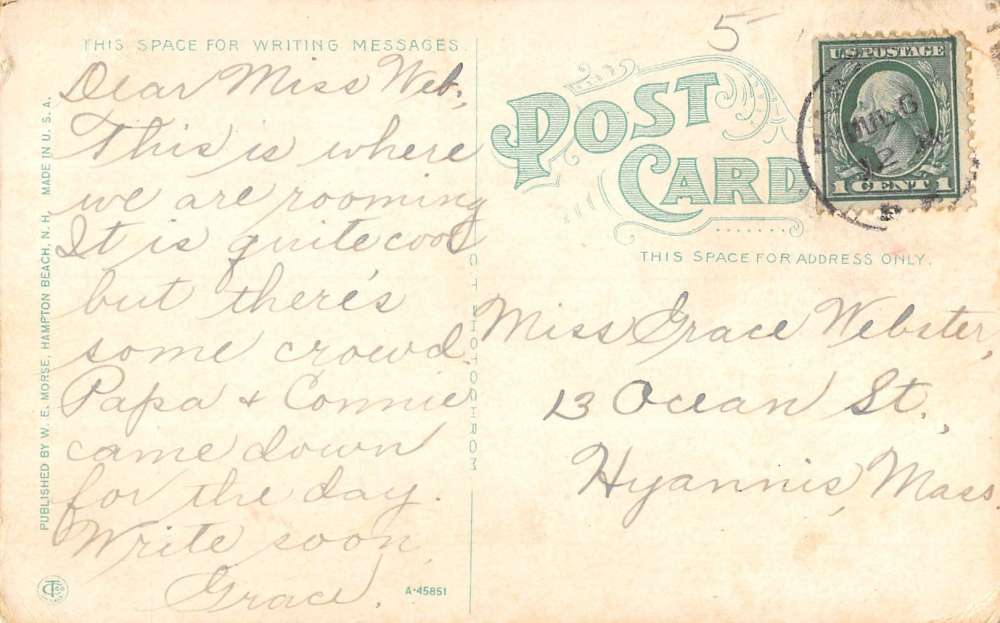 THIS SPACE FOR WRITING MESSAGES.
Dear Miss Web.,
This is where
we are rooming
It is quite cool
but there's
some crowd.
Papa & Connie
came down
for the day.
Write soon,
Grace.
PUBLISHED BY W. E. MORSE, HAMPTON BEACH, N. H. MADE IN U. S. A.
A-45851
5
POST
CARD
THIS SPACE FOR ADDRESS ONLY.
U.S. POSTAGE
1 CENT 1
Miss Grace Webster,
13 Ocean St.,
Hyannis, Mass.